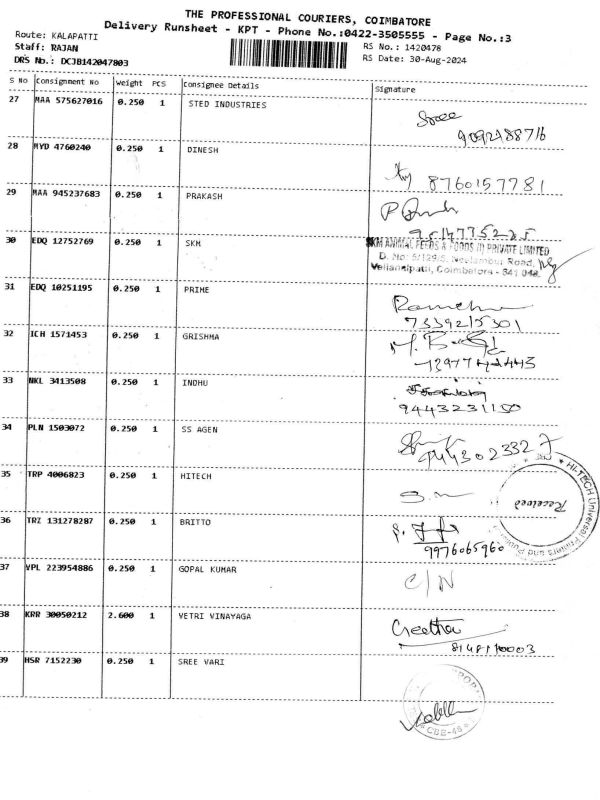 THE PROFESSIONAL COURIERS, COIMBATORE
Delivery Runsheet - KPT - Phone No.:0422-3505555 - Page No.:3
Route: KALAPATTI
Staff: RAJAN
DRS No.: DCJB142047803
RS No.: 1420478
RS Date: 30-Aug-2024
S No Consignment No Weight PCS Consignee Details Signature
27 MAA 575627016 0.250 1 STED INDUSTRIES
28 MYD 4760240 0.250 1 DINESH
8760157781
29 MAA 945237683 0.250 1 PRAKASH
30 EDQ 12752769 0.250 1 SKM
SKM ANIMAL FEEDS & FOODS (I) PRIVATE LIMITED
D. No: 5/129/5, Neelambur Road,
Vellanaipatti, Coimbatore - 641 048.
31 EDQ 10251195 0.250 1 PRIME
7339215301
32 ICH 1571453 0.250 1 GRISHMA
33 NKL 3413508 0.250 1 INDHU
9443231150
34 PLN 1503072 0.250 1 SS AGEN
9443023327
35 TRP 4006823 0.250 1 HITECH
HI-TECH Universal Printers and
Received
36 TRZ 131278287 0.250 1 BRITTO
9976065960
37 VPL 223954886 0.250 1 GOPAL KUMAR
C/N
38 KRR 30050212 2.600 1 VETRI VINAYAGA
Geetha
39 HSR 7152230 0.250 1 SREE VARI
CBE-48